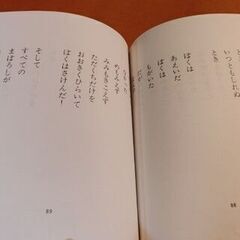 いつともしれぬ
とき
ぼくは
あえいだ
ぼくは
もがいた
88
めもみえず
みみもきこえず
ただくちだけを
おおきくひらいて
ぼくはさけんだ!
そして
すべての
まぼろしが
89